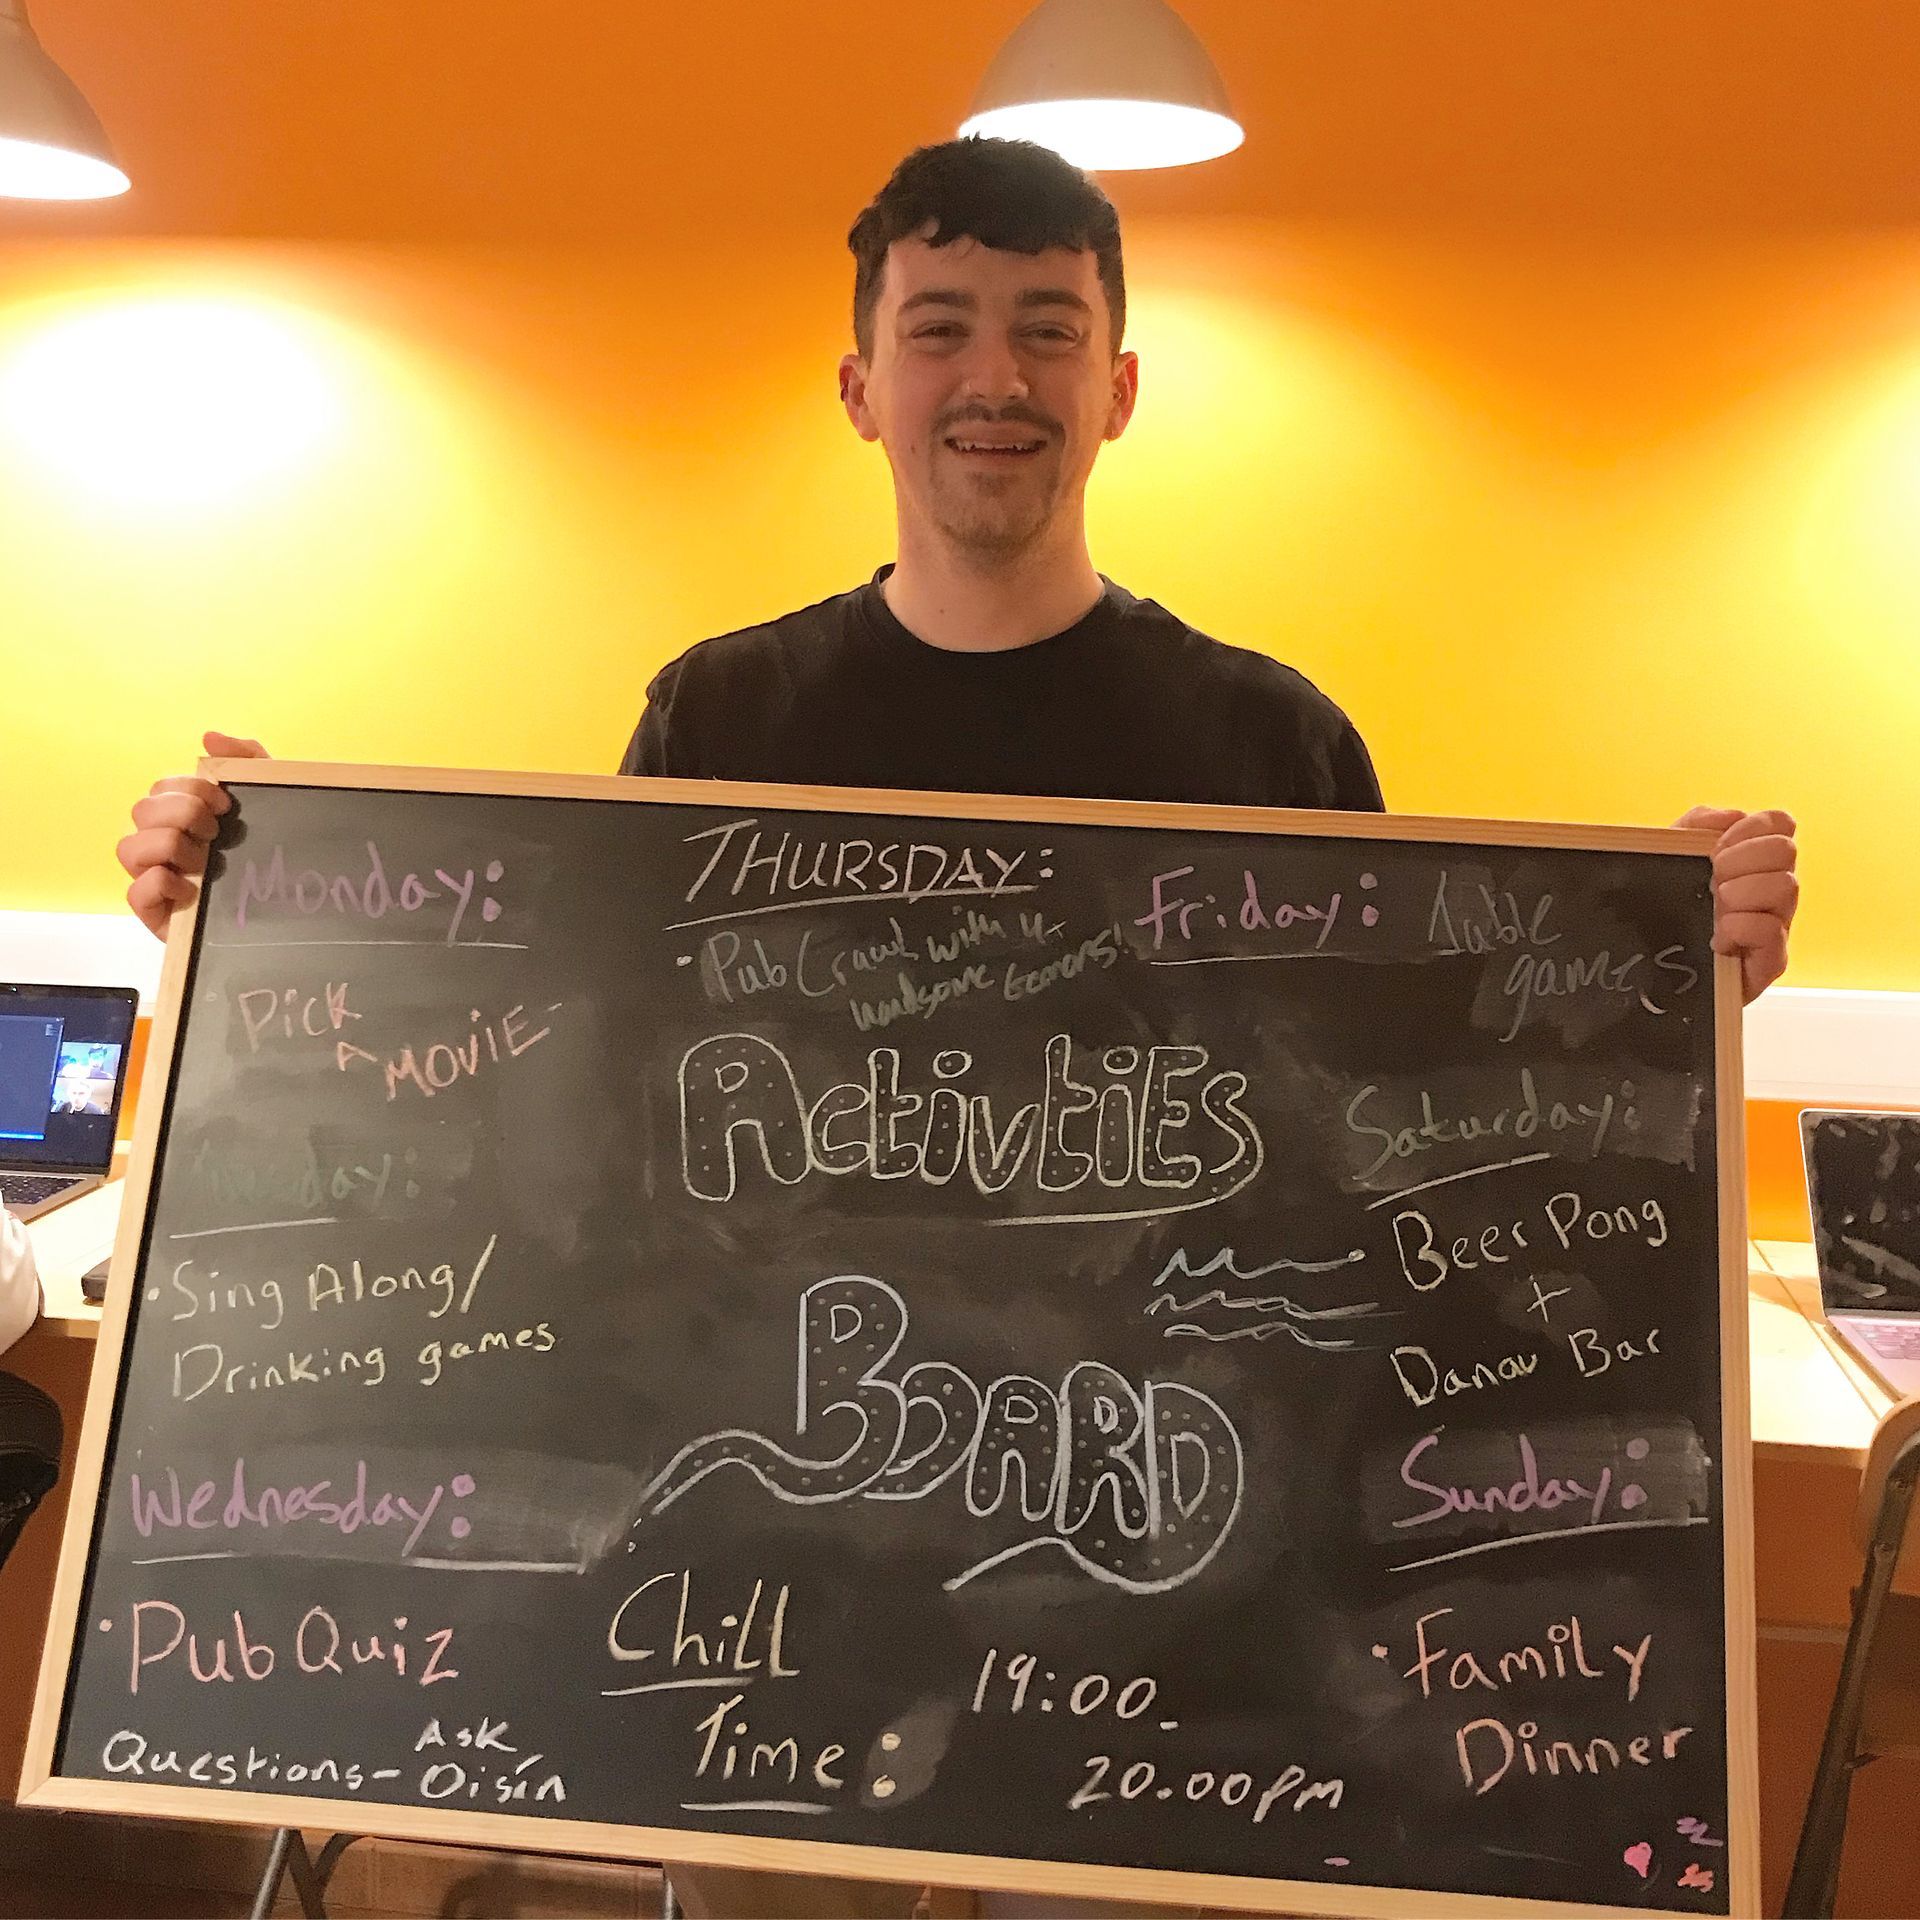 Monday:
Pick
A MOVIE
Tuesday:
Sing Along/
Drinking games
Wednesday:
Pub Quiz
Questions- Ask
Oisín
THURSDAY:
Pub Crawl with 4x
handsome Germans!
Activties
BOARD
Chill
Time:
19:00-
20.00pm
Friday: Table
games
Saturday:
Beer Pong
+
Danau Bar
Sunday:
Family
Dinner